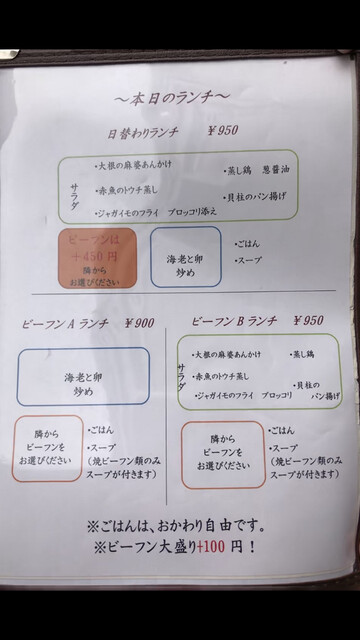 ～本日のランチ～
日替わりランチ ￥950
サラダ
・大根の麻婆あんかけ ・蒸し鶏 葱醤油
・赤魚のトウチ蒸し ・貝柱のパン揚げ
・ジャガイモのフライ ブロッコリ添え
ビーフンは
＋450円
隣から
お選びください
海老と卵
炒め
・ごはん
・スープ
ビーフンA ランチ ￥900
海老と卵
炒め
隣から
ビーフンを
お選びください
・ごはん
・スープ
（焼ビーフン類のみ
スープが付きます）
ビーフンB ランチ ￥950
サラダ
・大根の麻婆あんかけ ・蒸し鶏
・赤魚のトウチ蒸し ・貝柱の
・ジャガイモのフライ ブロッコリ パン揚げ
隣から
ビーフンを
お選びください
・ごはん
・スープ
（焼ビーフン類のみ
スープが付きます）
※ごはんは、おかわり自由です。
※ビーフン大盛り+100 円！